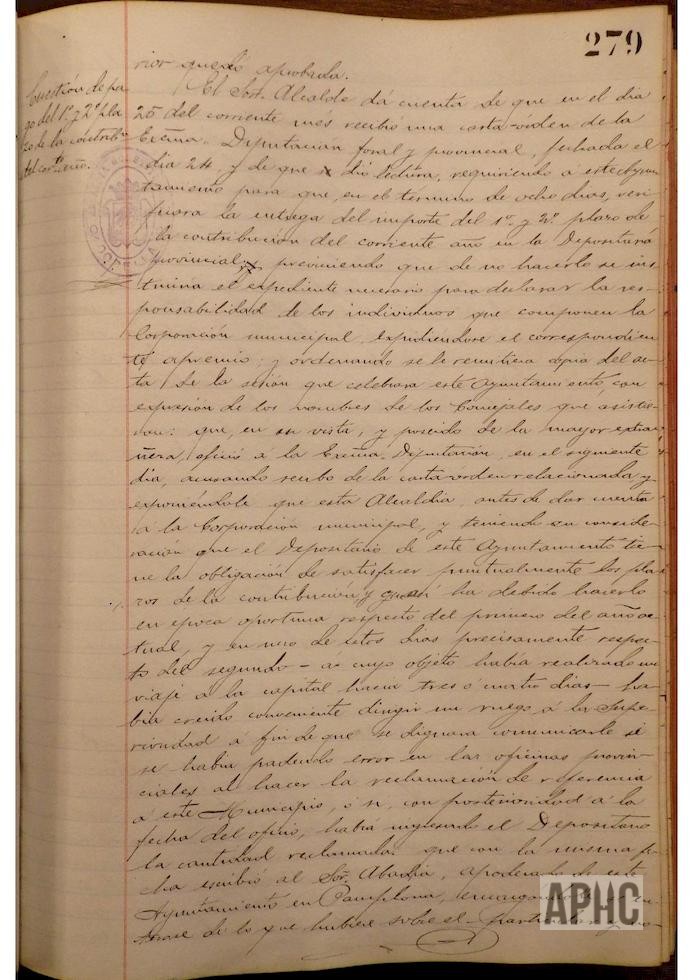 279
rior quedó aprobada.
Cuestión de pa-
go del 1º y 2º pla
zo de la contribu
del corrte. año.
El Sor. Alcalde dá cuenta de que en el dia
25 del corriente mes recibió una carta-órden de la
Excma. Diputacion foral y provincial, fechada el
dia 24, y de que dió lectura, requiriendo a este Ayun-
tamiento para que, en el termino de ocho dias, veri-
ficara la entrega del importe del 1º y 2º plazo de
la contribución del corriente año en la Depositaria
provincial, previniendo que de no hacerlo se ins-
truiria el expediente necesario para declarar la res-
ponsabilidad de los individuos que componen la
Corporación municipal, expidiendose el correspondien-
te apremio; y ordenando se le remitiera copia del ac-
ta de la sesión que celebrara este Ayuntamiento, con
expresión de los nombres de los Concejales que asistie-
ran: que, en su vista, y poseido de la mayor extra-
ñeza, ofició á la Excma. Diputación, en el siguiente
dia, acusando recibo de la carta-órden relacionada y
exponiéndole que esta Alcaldia, antes de dar cuenta
á la Corporación municipal, y teniendo en conside-
ración que el Depositario de este Ayuntamiento tie-
ne la obligación de satisfacer puntualmente los pla-
zos de la contribución, y que así ha debido hacerlo
en época oportuna respecto del primero del año ac-
tual, y en uno de estos dias precisamente respec-
to del segundo - á cuyo objeto habia realizado un
viaje á la capital hacia tres ó cuatro dias - ha-
bia creido conveniente dirigir un ruego á la Supe-
rioridad á fin de que se dignara comunicarle si
se habia padecido error en las oficinas provin-
ciales al hacer la reclamación de referencia
a este Municipio, ó si, con posterioridad á la
fecha del oficio, habia ingresado el Depositario
la cantidad reclamada: que con la misma fe-
cha escribió al Sor. Abadia, apoderado de este
Ayuntamiento en Pamplona,
trase de lo que hubiese sobre el particular
APHC